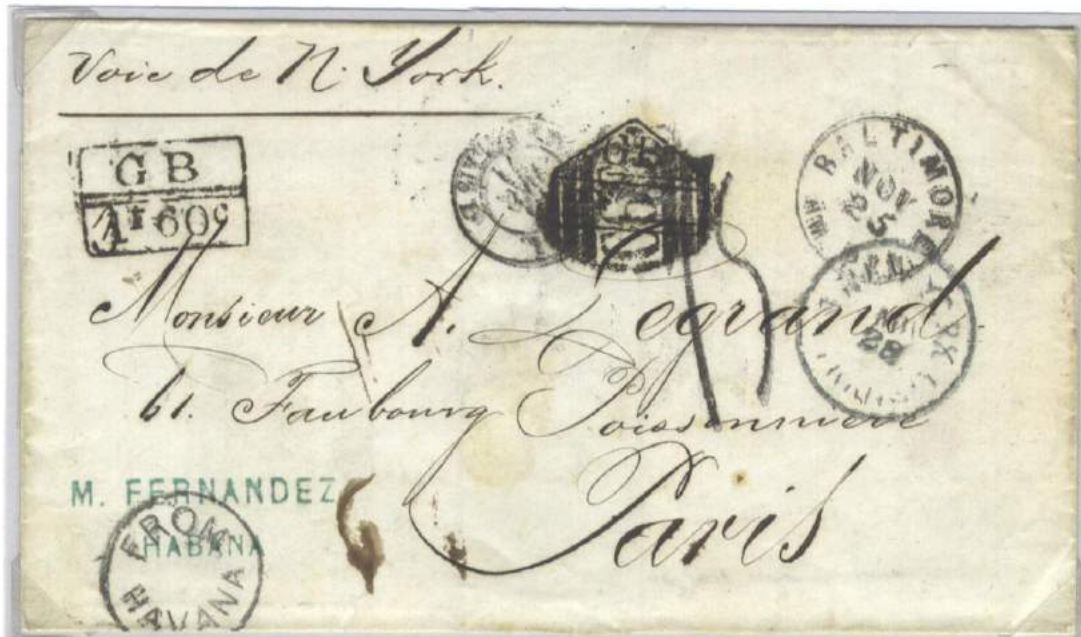 Voie de N. York.
G B
1f 60c
G B
BALTIMORE
NOV
25
NEW YORK
NOV
28
15
Monsieur A. Legrand
61. Faubourg Poissonniere
Paris
M. FERNANDEZ
HABANA
FROM
HAVANA